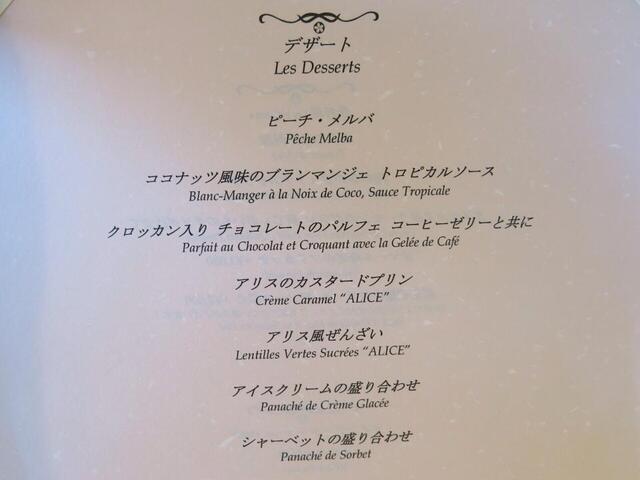 デザート
Les Desserts
ピーチ・メルバ
Pêche Melba
ココナッツ風味のブランマンジェ トロピカルソース
Blanc-Manger à la Noix de Coco, Sauce Tropicale
クロッカン入り チョコレートのパルフェ コーヒーゼリーと共に
Parfait au Chocolat et Croquant avec la Gelée de Café
アリスのカスタードプリン
Crème Caramel “ALICE”
アリス風ぜんざい
Lentilles Vertes Sucrées “ALICE”
アイスクリームの盛り合わせ
Panaché de Crème Glacée
シャーベットの盛り合わせ
Panaché de Sorbet